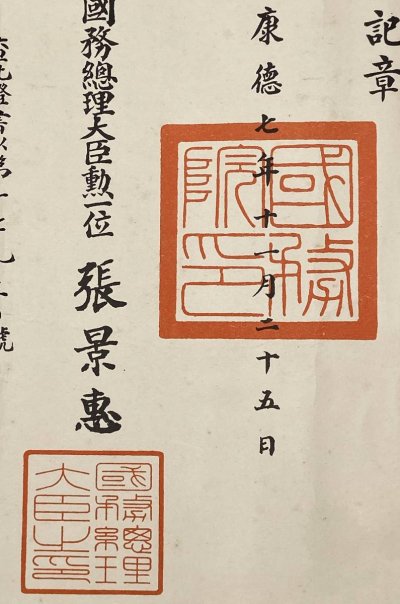 記章
康德七年十一月二十五日
國務院印
國務總理大臣勳一位 張景惠
國務總理大臣之印
號